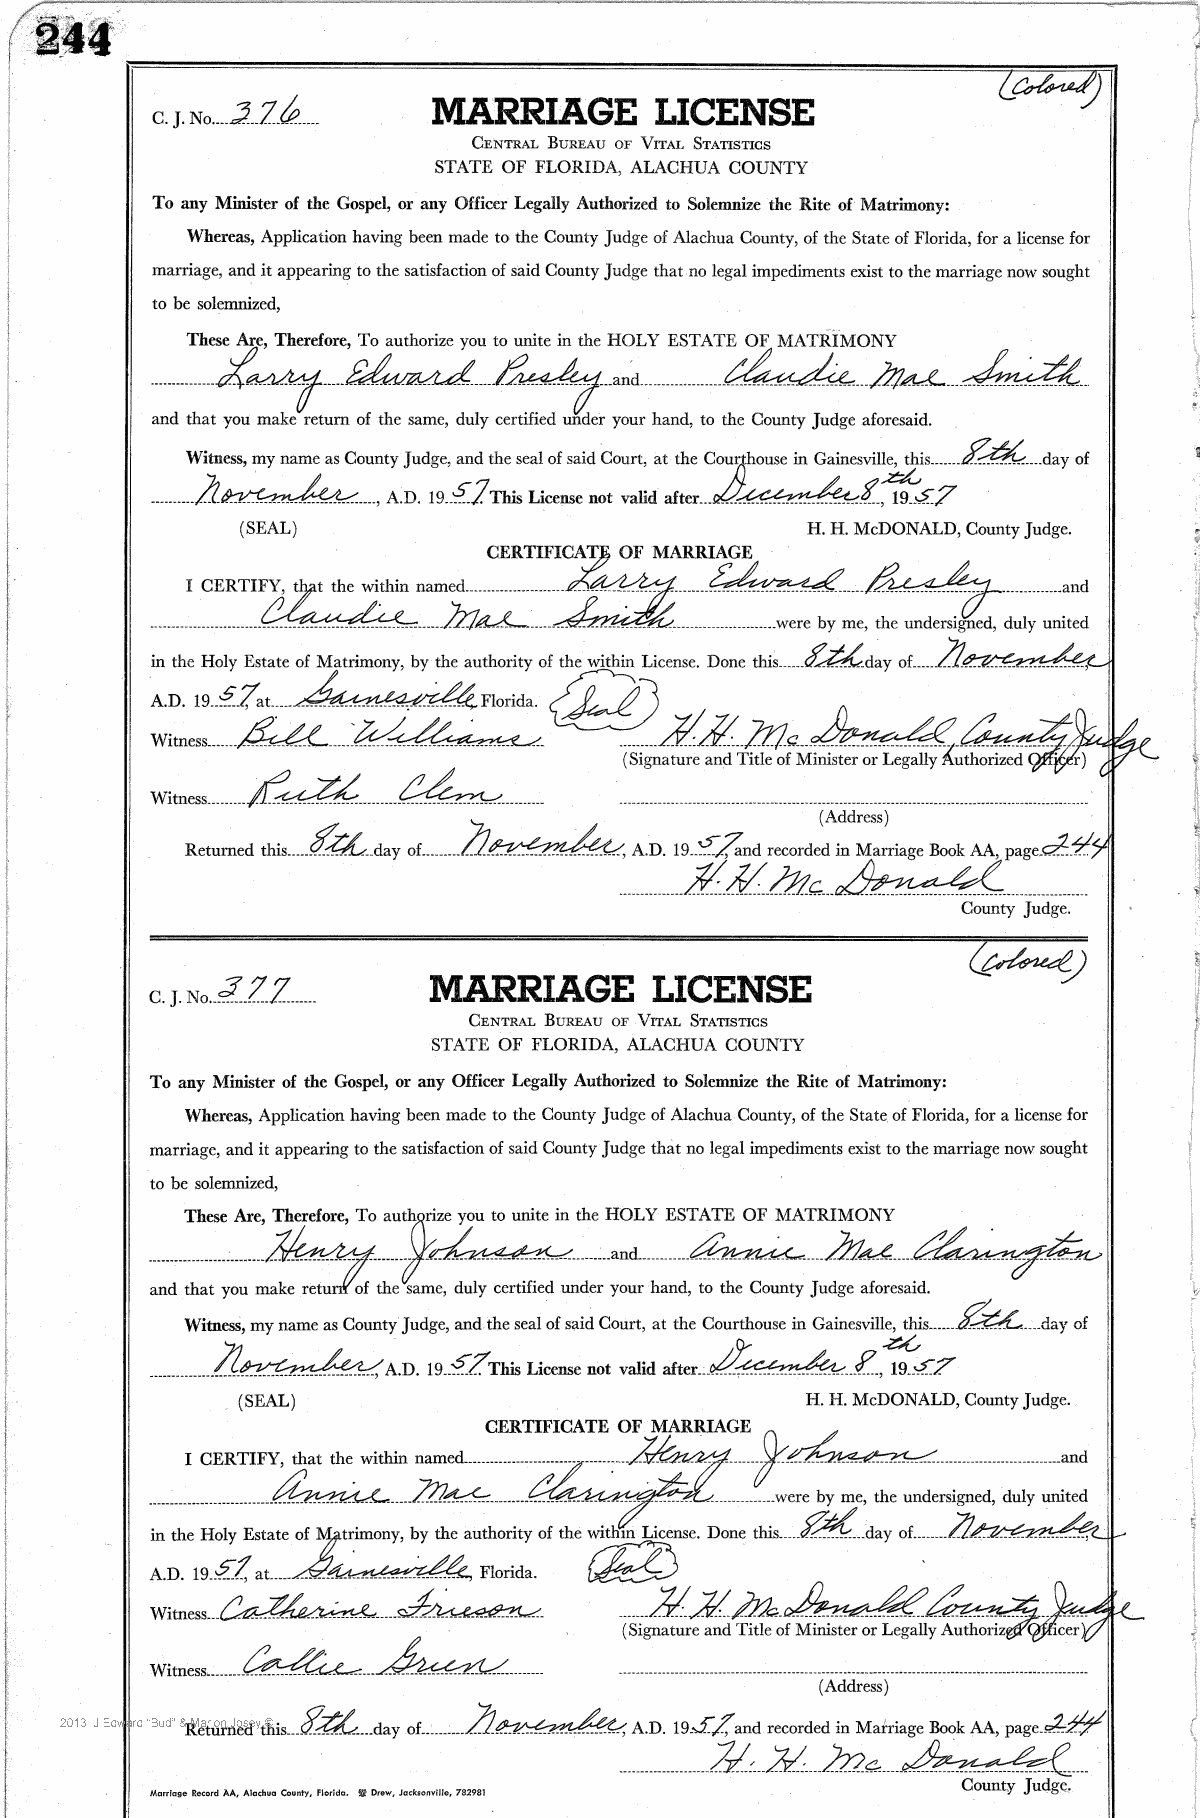 244
(Colored)
C. J. No. 376
MARRIAGE LICENSE
CENTRAL BUREAU OF VITAL STATISTICS
STATE OF FLORIDA, ALACHUA COUNTY
To any Minister of the Gospel, or any Officer Legally Authorized to Solemnize the Rite of Matrimony:
Whereas, Application having been made to the County Judge of Alachua County, of the State of Florida, for a license for
marriage, and it appearing to the satisfaction of said County Judge that no legal impediments exist to the marriage now sought
to be solemnized,
These Are, Therefore, To authorize you to unite in the HOLY ESTATE OF MATRIMONY
Larry Edward Presley and Claudie Mae Smith
and that you make return of the same, duly certified under your hand, to the County Judge aforesaid.
Witness, my name as County Judge, and the seal of said Court, at the Courthouse in Gainesville, this 8th day of
November, A.D. 1957. This License not valid after December 8th, 1957
(SEAL) H. H. McDONALD, County Judge.
CERTIFICATE OF MARRIAGE
I CERTIFY, that the within named Larry Edward Presley and
Claudie Mae Smith were by me, the undersigned, duly united
in the Holy Estate of Matrimony, by the authority of the within License. Done this 8th day of November,
A.D. 1957, at Gainesville, Florida. Seal
Witness Bill Williams H. H. McDonald, County Judge
(Signature and Title of Minister or Legally Authorized Officer)
Witness Ruth Clem
(Address)
Returned this 8th day of November, A.D. 1957, and recorded in Marriage Book AA, page 244
H. H. McDonald
County Judge.
(Colored)
C. J. No. 377
MARRIAGE LICENSE
CENTRAL BUREAU OF VITAL STATISTICS
STATE OF FLORIDA, ALACHUA COUNTY
To any Minister of the Gospel, or any Officer Legally Authorized to Solemnize the Rite of Matrimony:
Whereas, Application having been made to the County Judge of Alachua County, of the State of Florida, for a license for
marriage, and it appearing to the satisfaction of said County Judge that no legal impediments exist to the marriage now sought
to be solemnized,
These Are, Therefore, To authorize you to unite in the HOLY ESTATE OF MATRIMONY
Henry Johnson and Annie Mae Clarington
and that you make return of the same, duly certified under your hand, to the County Judge aforesaid.
Witness, my name as County Judge, and the seal of said Court, at the Courthouse in Gainesville, this 8th day of
November, A.D. 1957. This License not valid after December 8th, 1957
(SEAL) H. H. McDONALD, County Judge.
CERTIFICATE OF MARRIAGE
I CERTIFY, that the within named Henry Johnson and
Annie Mae Clarington were by me, the undersigned, duly united
in the Holy Estate of Matrimony, by the authority of the within License. Done this 8th day of November,
A.D. 1957, at Gainesville, Florida. Seal
Witness Catherine Frieson H. H. McDonald County Judge
(Signature and Title of Minister or Legally Authorized Officer)
Witness Callie Green
(Address)
2013 J Edward "Bud" & Marion Josey ©
Returned this 8th day of November, A.D. 1957, and recorded in Marriage Book AA, page 244
H. H. McDonald
County Judge.
Marriage Record AA, Alachua County, Florida. Drew, Jacksonville, 782981